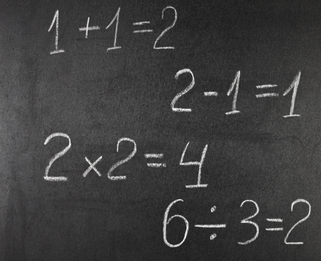 1+1=2
2-1=1
2×2=4
6÷3=2